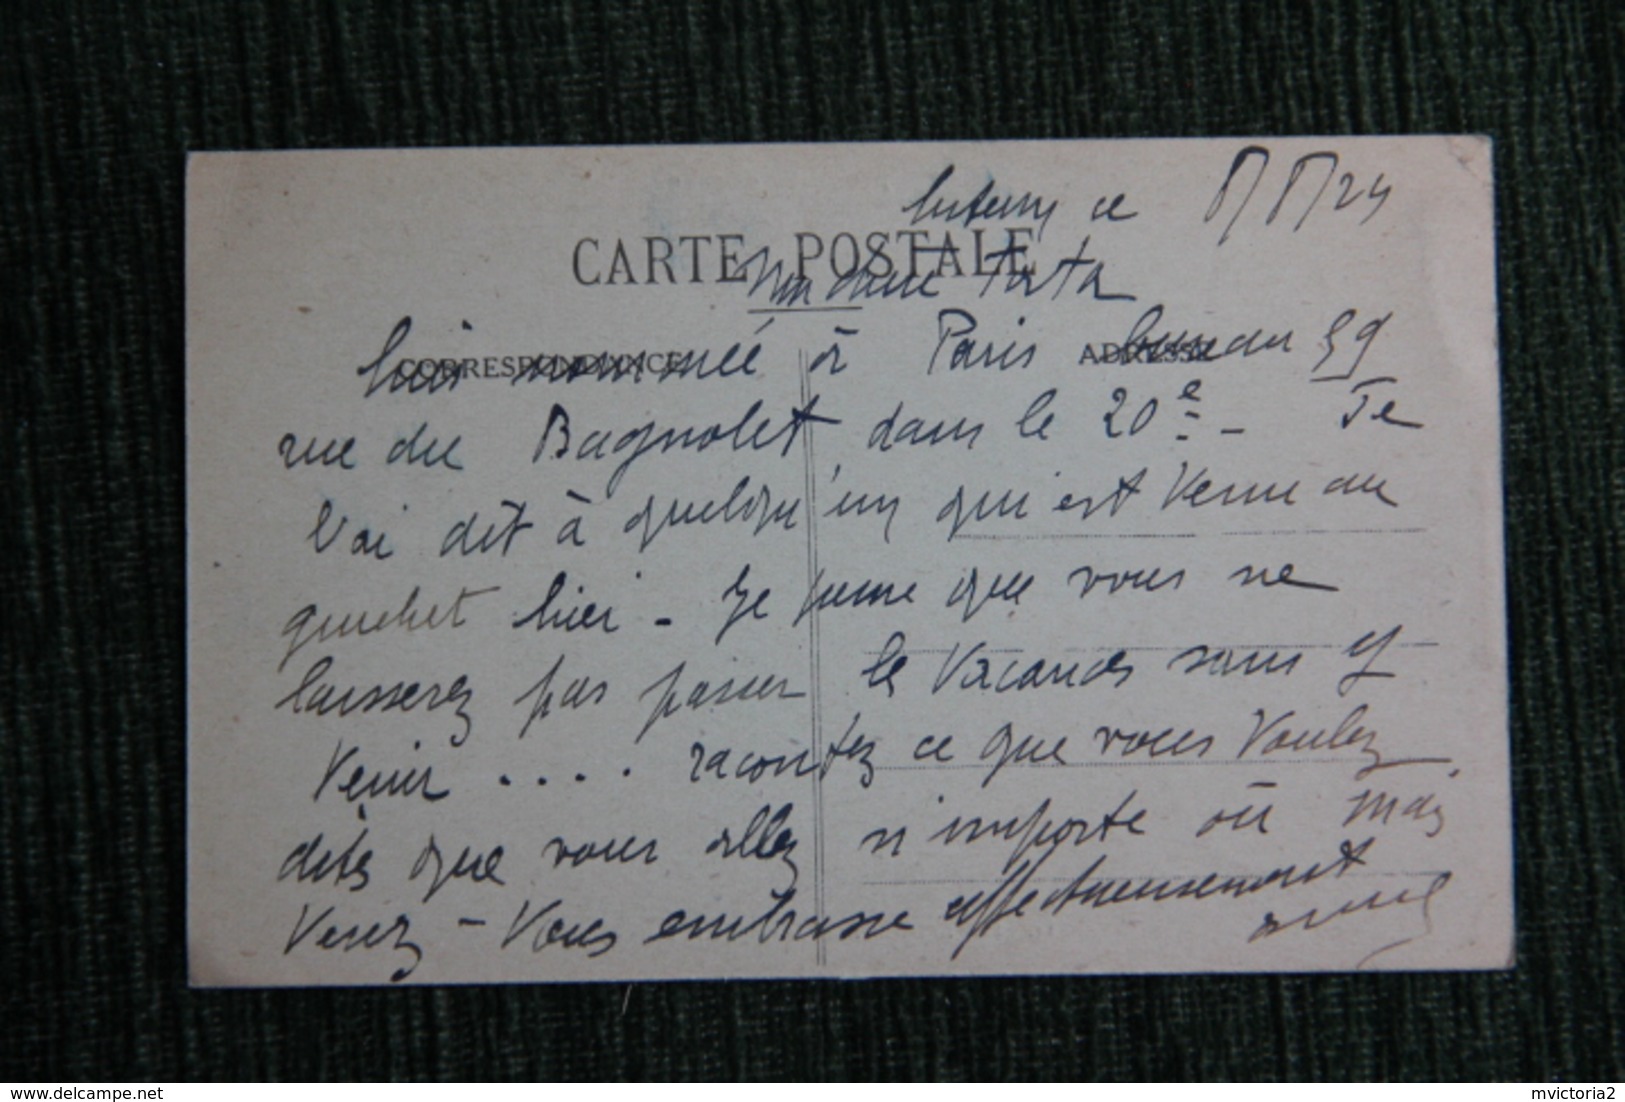 ce 8/8/24
CARTE POSTALE
Madame Tata
CORRESPONDANCE ADRESSE
suis nommée à Paris bureau 59
rue du Bagnolet dans le 20e - Je
l'ai dit à quelqu'un qui est venu au
guichet hier - Je pense que vous ne
laisserez pas passer les vacances sans y
venir .... racontez ce que vous voulez
dites que vous allez n'importe où mais
venez - Vous embrasse affectueusement
delcampe.net
mvictoria2